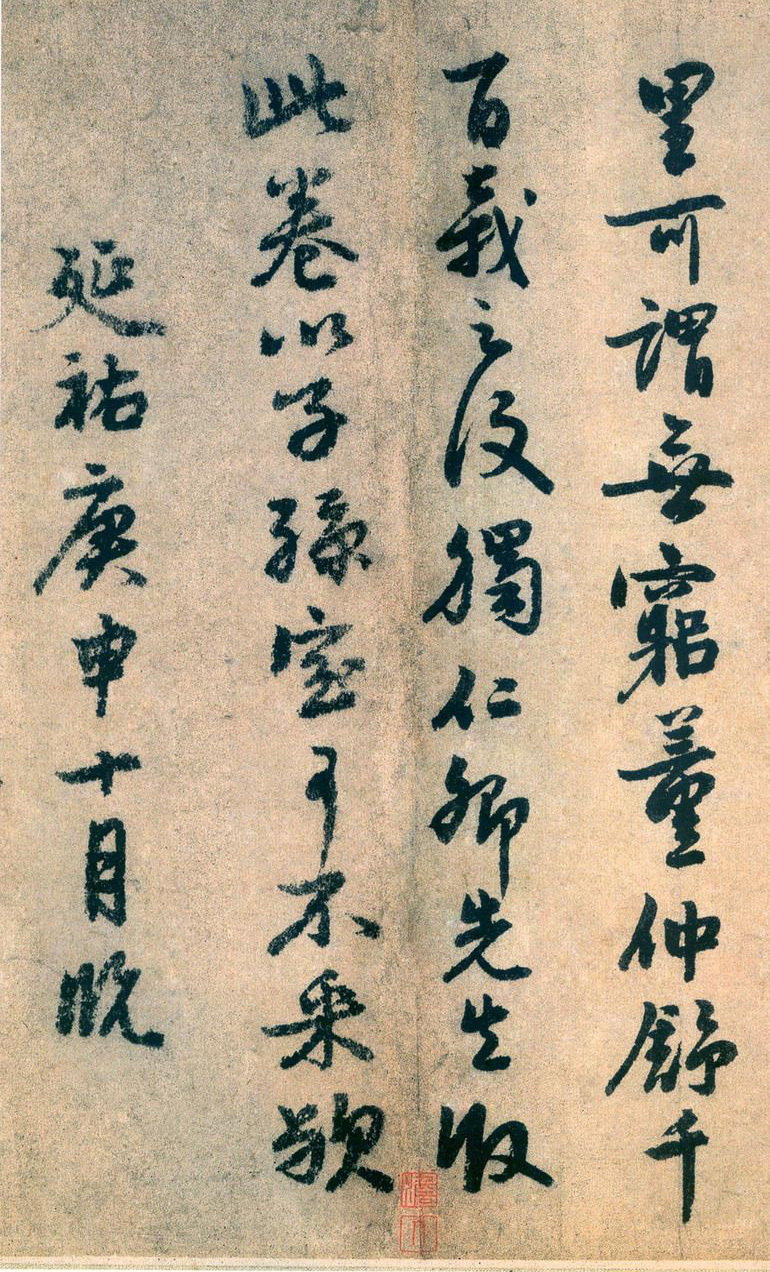 里可謂無窮董仲舒千
百载之後獨仁卿先生收
此卷以子孫寶可不乘歟
延祐庚申十月既